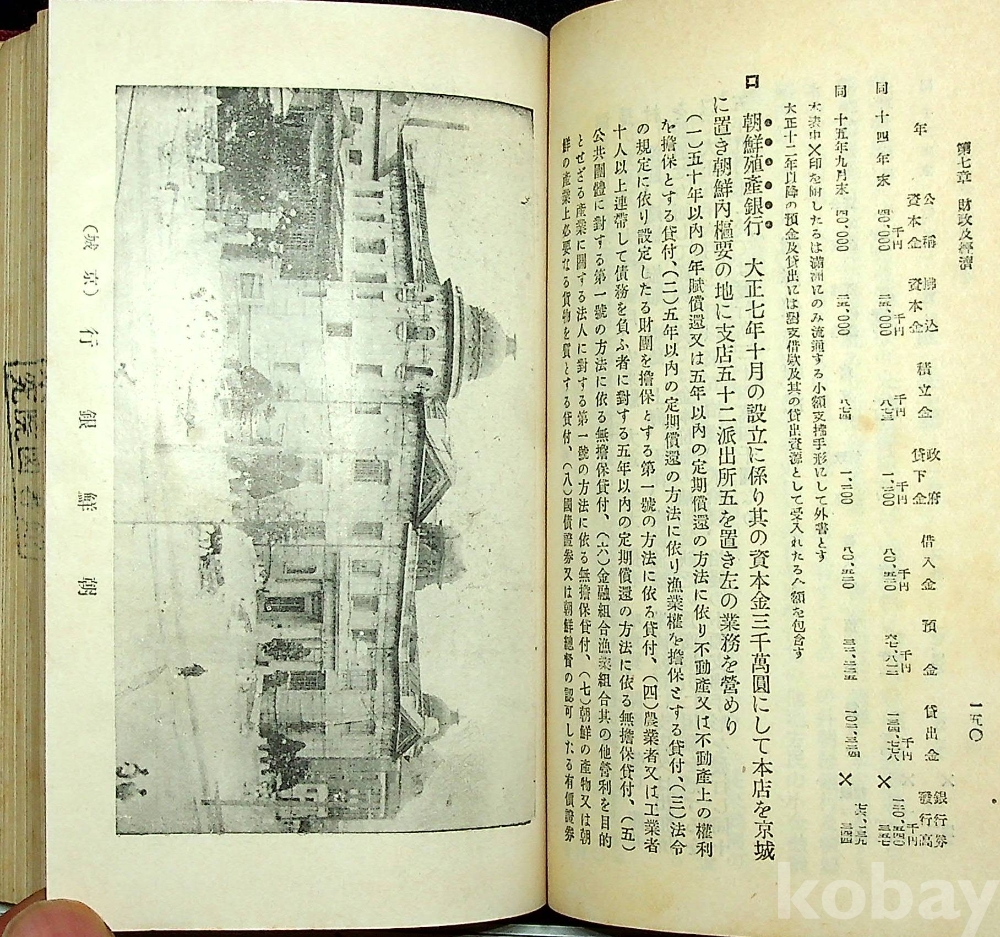 第七章 財政及經濟
一五〇
年
公稱資本金
拂込資本金
積立金
政府貸下金
借入金
預金
貸出金
銀行券發行高
同 十四年末
千円 四〇,〇〇〇
千円 二五,〇〇〇
千円
千円 一,二〇〇
千円
千円
千円
千円
同 十五年九月末
四〇,〇〇〇
二五,〇〇〇
本表中×印を附したるは滿洲にのみ流通する小額支拂手形にして外書とす
大正十二年以降の預金及貸出には對支借款及其の貸出資源として受入れたる金額を包含す
朝鮮殖產銀行 大正七年十月の設立に係り其の資本金三千萬圓にして本店を京城
に置き朝鮮內樞要の地に支店五十二派出所五を置き左の業務を營めり
(一)五十年以內の年賦償還又は五年以內の定期償還の方法に依り不動產又は不動產上の權利
を擔保とする貸付、(二)五年以內の定期償還の方法に依り漁業權を擔保とする貸付、(三)法令
の規定に依り設定したる財團を擔保とする第一號の方法に依る貸付、(四)農業者又は工業者
十人以上連帶して債務を負ふ者に對する五年以內の定期償還の方法に依る無擔保貸付、(五)
公共團體に對する第一號の方法に依る無擔保貸付、(六)金融組合漁業組合其の他營利を目的
とせざる產業に關する法人に對する第一號の方法に依る無擔保貸付、(七)朝鮮の產物又は朝
鮮の產業上必要なる貨物を質とする貸付、(八)國債證券又は朝鮮總督の認可したる有價證券
朝鮮銀行(京城)
kobay